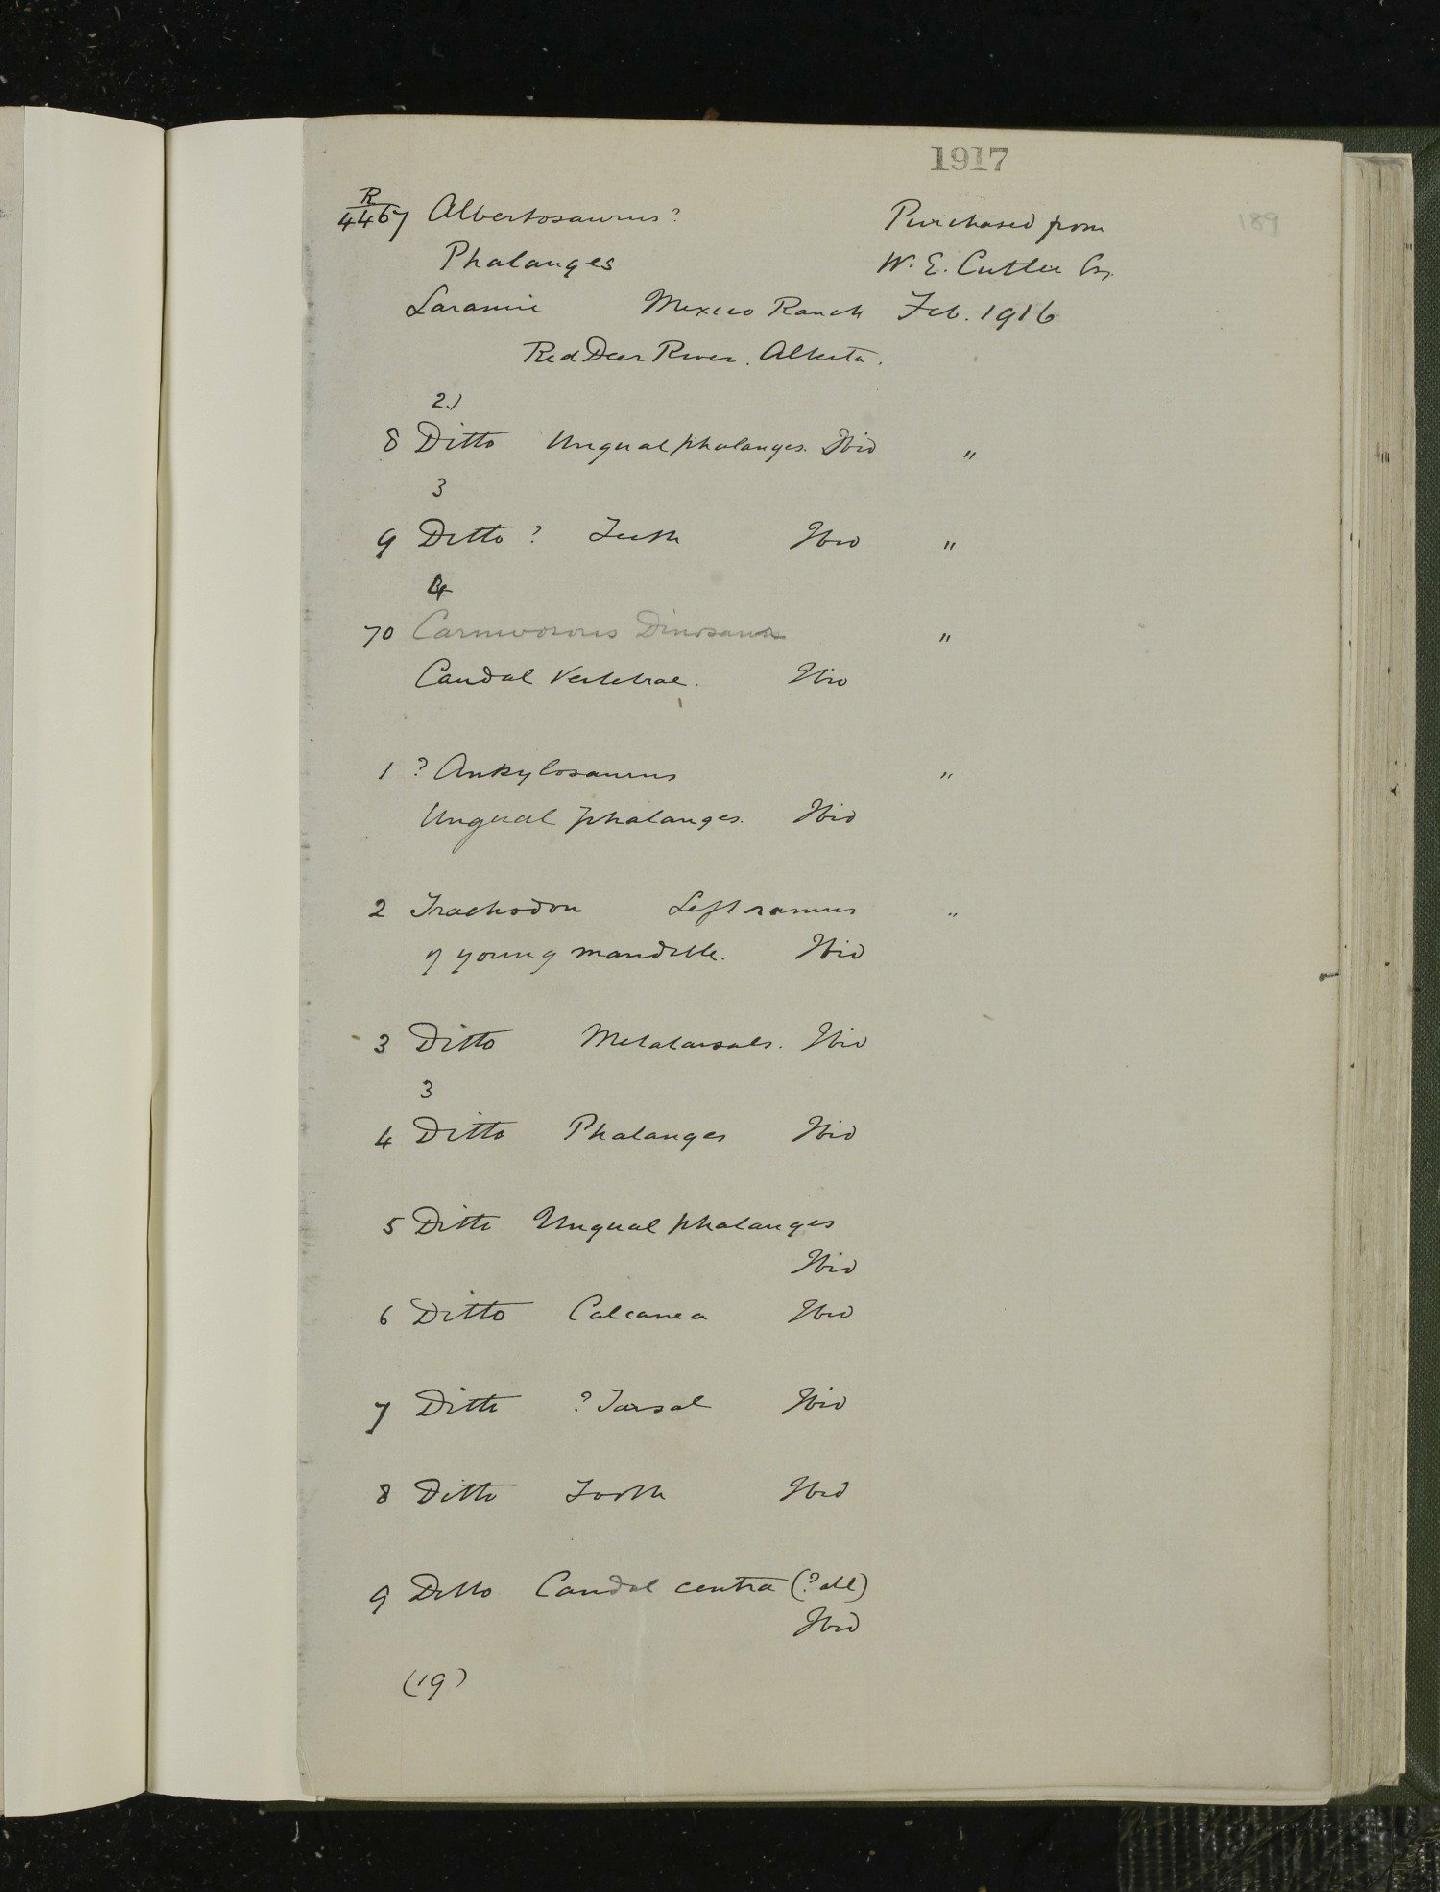 1917
189
R
4467 Albertosaurus? Purchased from
Phalanges W. E. Cutler Esq.
Laramie Mexico Ranch Feb. 1916
Red Deer River. Alberta.
2)
8 Ditto Ungual phalanges. Ibid "
3
9 Ditto ? Teeth Ibid "
4
70 Carnivorous Dinosaur "
Caudal Vertebrae. Ibid
1 ? Ankylosaurus "
Ungual phalanges. Ibid
2 Trachodon Left ramus "
of young mandible. Ibid
3 Ditto Metatarsals. Ibid
3
4 Ditto Phalanges Ibid
5 Ditto Ungual phalanges
Ibid
6 Ditto Calcanea Ibid
7 Ditto ? Tarsal Ibid
8 Ditto Tooth Ibid
9 Ditto Caudal centra (? all)
Ibid
(19)